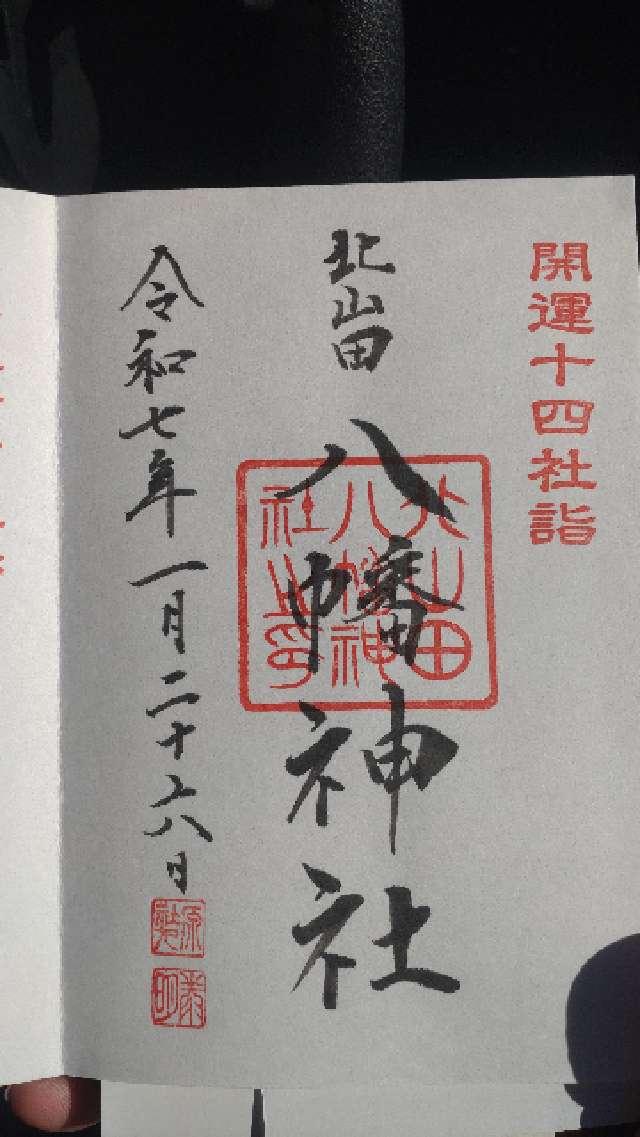 開運十四社詣
北山田
八幡神社
北山田
八幡神
社之印
令和七年一月二十六日